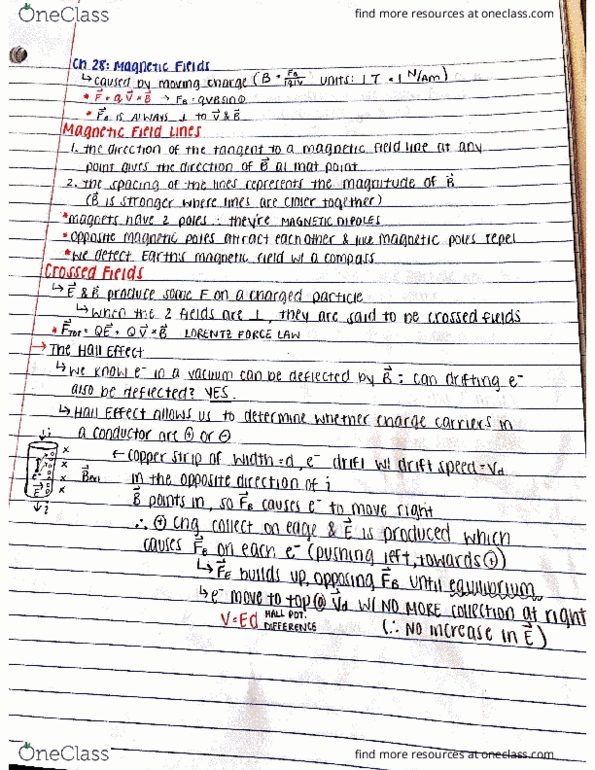 OneClass
find more resources at oneclass.com
Ch 28: Magnetic Fields
↳ caused by moving charge (B = F_B/|q|v units: 1 T = 1 N/Am)
* F⃗ = q v⃗ × B⃗ → F_B = qvBsinθ
* F⃗_B is ALWAYS ⊥ to v⃗ & B⃗
Magnetic Field Lines
1. the direction of the tangent to a magnetic field line at any
point gives the direction of B⃗ at that point
2. the spacing of the lines represents the magnitude of B⃗
(B⃗ is stronger where lines are closer together)
*magnets have 2 poles ∴ they're MAGNETIC DIPOLES
*opposite magnetic poles attract eachother & like magnetic poles repel
*we detect Earth's magnetic field w/ a compass
Crossed Fields
↳ E⃗ & B⃗ produce some F on a charged particle
↳ when the 2 fields are ⊥, they are said to be crossed fields
* F⃗_TOT = QE⃗ + QV⃗ × B⃗ LORENTZ FORCE LAW
→ The Hall Effect
↳ we know e⁻ in a vacuum can be deflected by B⃗ ∴ can drifting e⁻
also be deflected? YES.
↳ Hall Effect allows us to determine whether charge carriers in
a conductor are ⊕ or ⊖
← copper strip of width = d, e⁻ drift w/ drift speed = v_d
in the opposite direction of i
B⃗ points in, so F⃗_B causes e⁻ to move right
∴ ⊕ chg collect on edge & E⃗ is produced which
causes F⃗_B on each e⁻ (pushing left, towards ⊕)
↳ F⃗_E builds up, opposing F⃗_B until equilibrium
↳ e⁻ move to top @ v⃗_d w/ NO MORE collection at right
V=Ed HALL POT. DIFFERENCE (∴ No increase in E⃗)
↓i
x
x
x
x
E⃗
↓i
OneClass
find more resources at oneclass.com